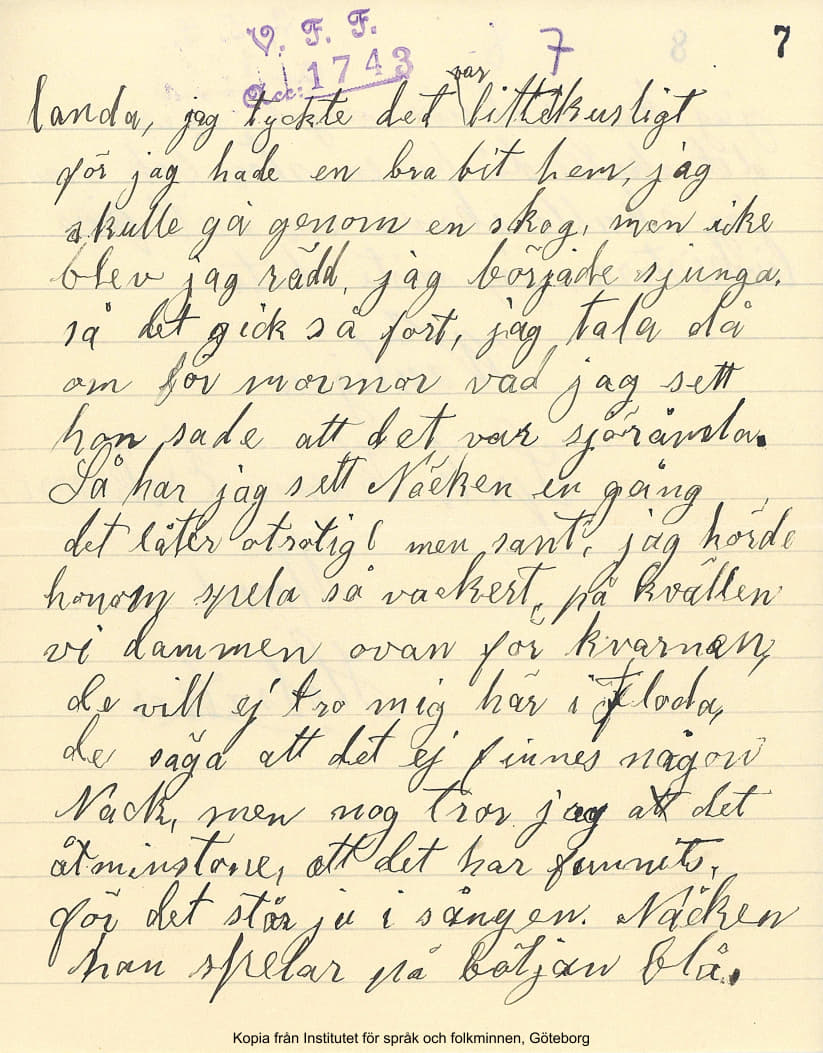 V. F. F. 7 7
Acc: 1743
landa, jag tyckte det var litet kusligt
för jag hade en bra bit hem, jag
skulle gå genom en skog, men icke
blev jag rädd, jag började sjunga,
så det gick så fort, jag tala då
om för mormor vad jag sett
hon sade att det var sjörånda.
Så har jag sett Näcken en gång
det låter otrotigt men sant, jag hörde
honom spela så vackert, på kvällen
vi dammen ovan för kvarnen,
de vill ej tro mig här i Floda,
de säga att det ej finnes någon
Näck, men nog tror jag att det
åtminstone, att det har funnits,
för det står ju i sången. Näcken
han spelar på böljan blå.
Kopia från Institutet för språk och folkminnen, Göteborg